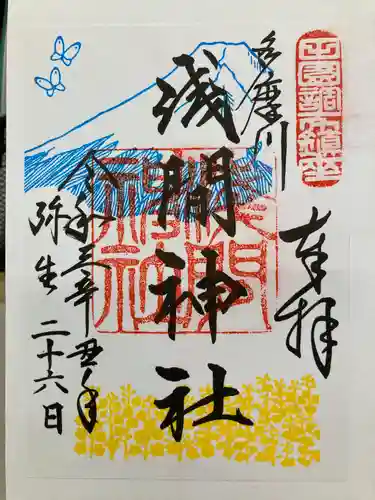 奉拝
多摩川
浅間神社
令和三辛丑年
弥生二十六日
浅間神社